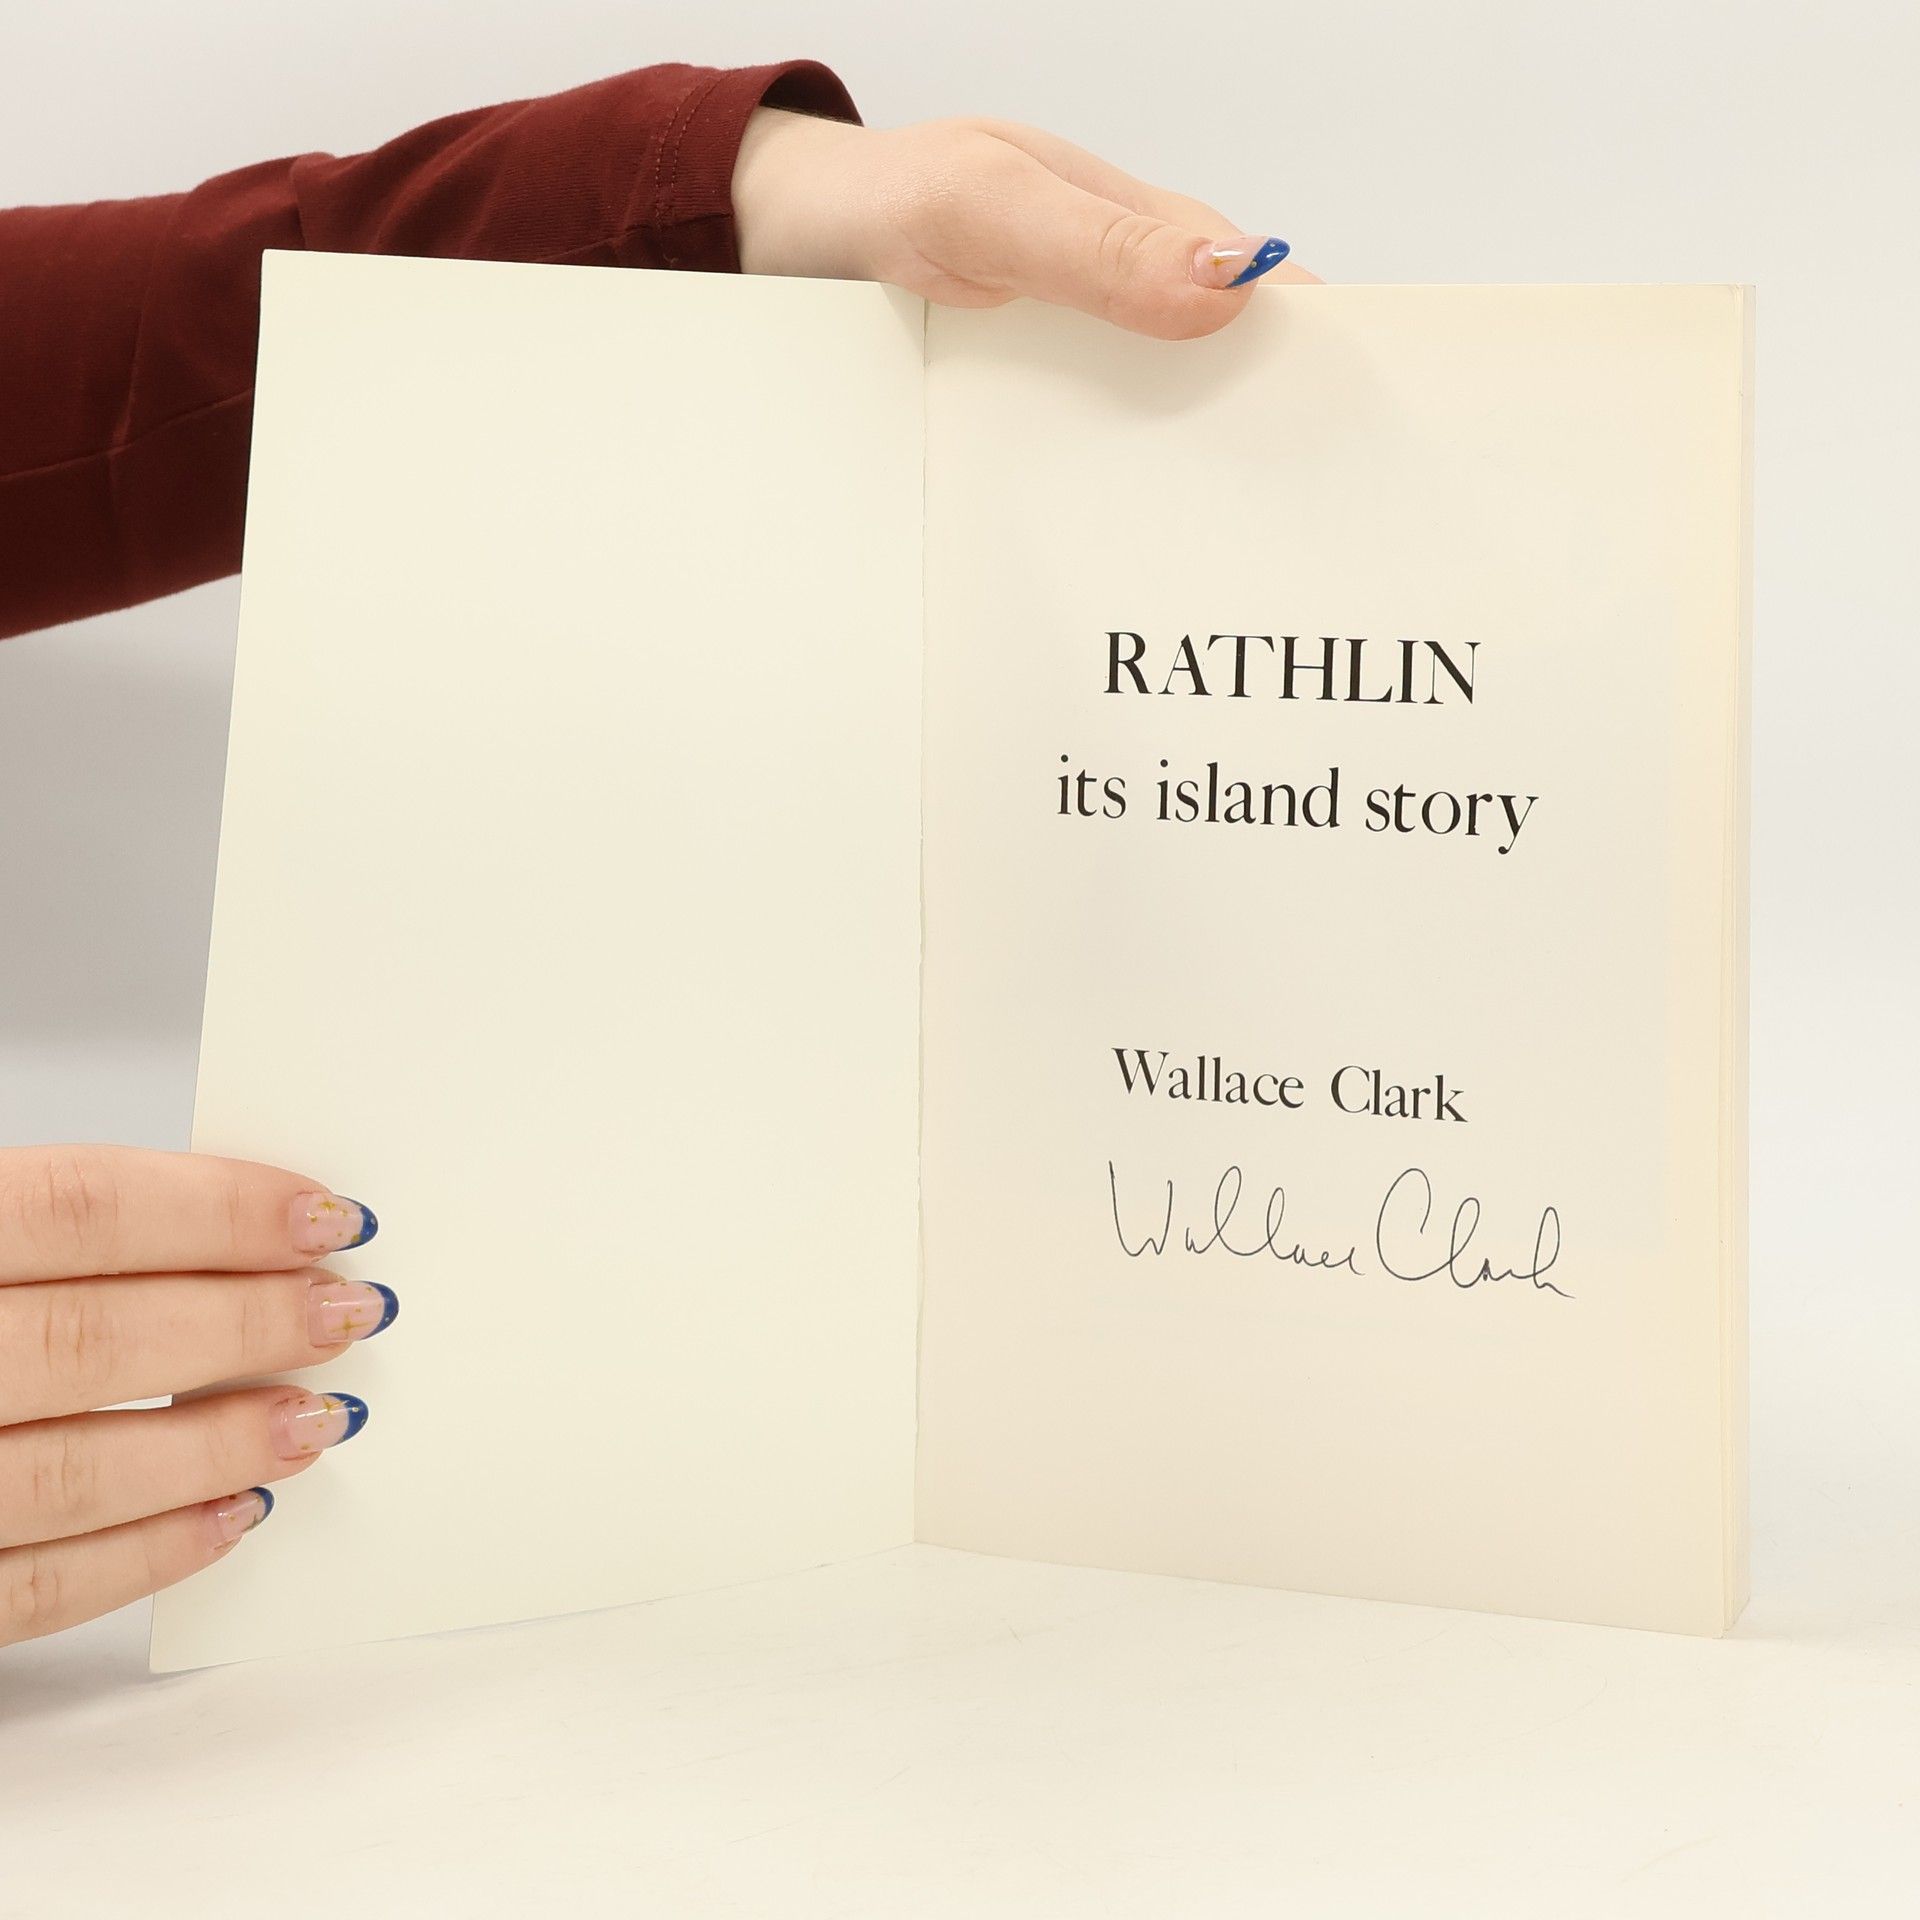 RATHLIN
its island story
Wallace Clark
Wallace Clark